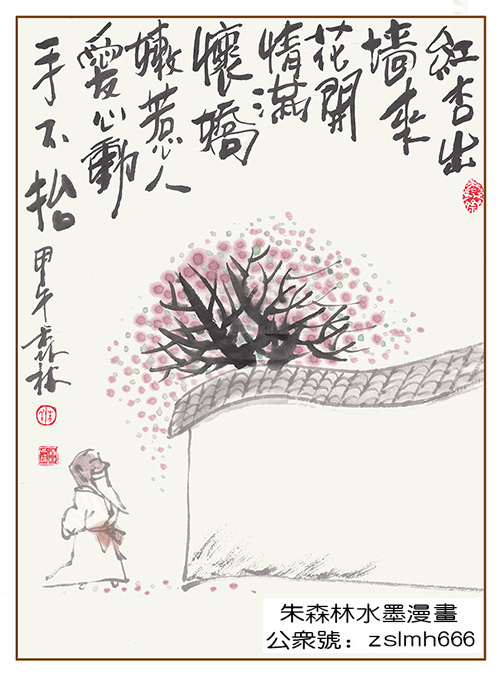 紅杏出
墙来
花開
情滿
懷嬌
嫩惹人
愛心動
手不抬
甲午森林
朱森林水墨漫畫
公衆號：zslmh666